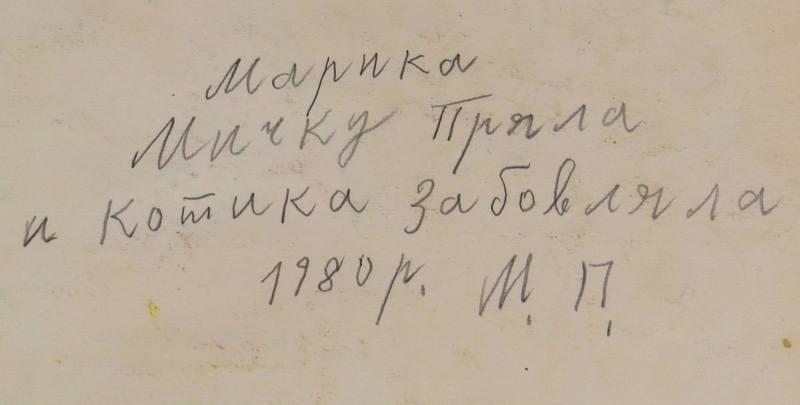 Марика
Мичку Пряла
и котика забовляла
1980 р. М. П.